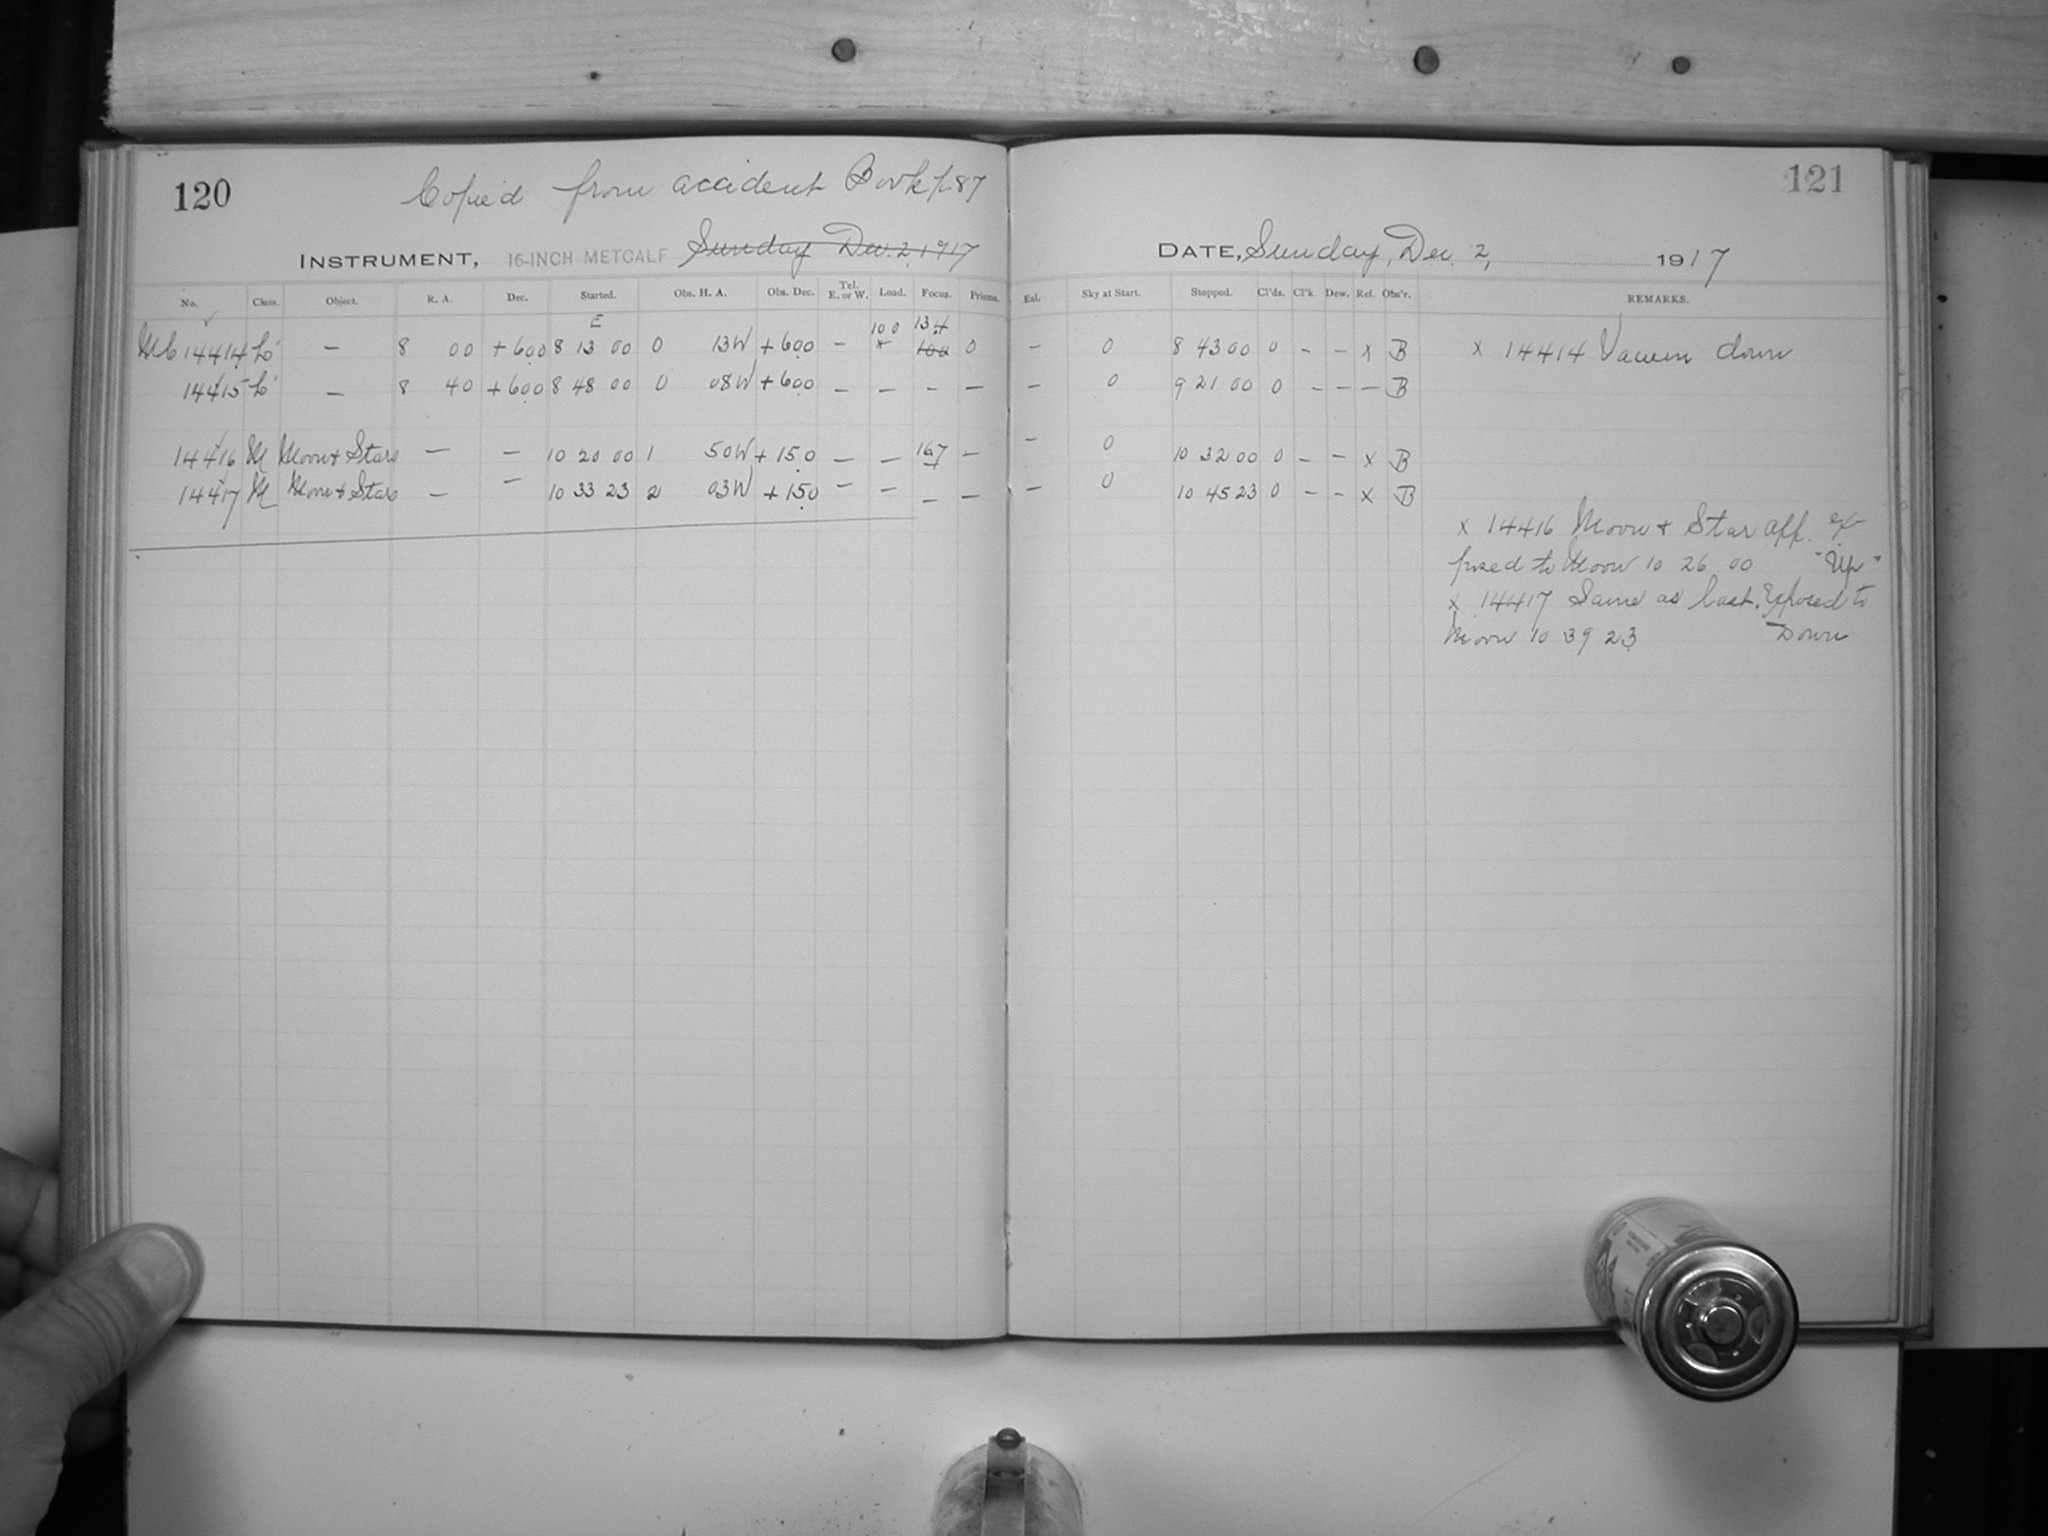 120 Copied from accident Book p. 87
INSTRUMENT, 16-INCH METCALF Sunday Dec. 2, 1917
No. Class. Object. R. A. Dec. Started. Obs. H. A. Obs. Dec. Tel. E. or W. Load. Focus. Prisms.
E 100 134
MC 14414 — 8 00 +60.0 8 13 00 0 13W +60.0 — x 100 0
14415 — 8 40 +60.0 8 48 00 0 08W +60.0 — — — —
14416 M Moon + Stars — — 10 20 00 1 50W +15.0 — — 167 —
14417 M Moon + Stars — — 10 33 23 2 03W +15.0 — — — —
121
DATE, Sunday, Dec. 2, 1917
Exl. Sky at Start. Stopped. Cl'ds. Cl'k. Dew. Ref. Obs'r. REMARKS.
— 0 8 43 00 0 — — x B x 14414 Vacuum down
— 0 9 21 00 0 — — — B
— 0 10 32 00 0 — — x B
— 0 10 45 23 0 — — x B
x 14416 Moon + Star app. ex-
posed to Moon 10 26 00 "Up"
x 14417 Same as last. Exposed to
Moon 10 39 23 Down